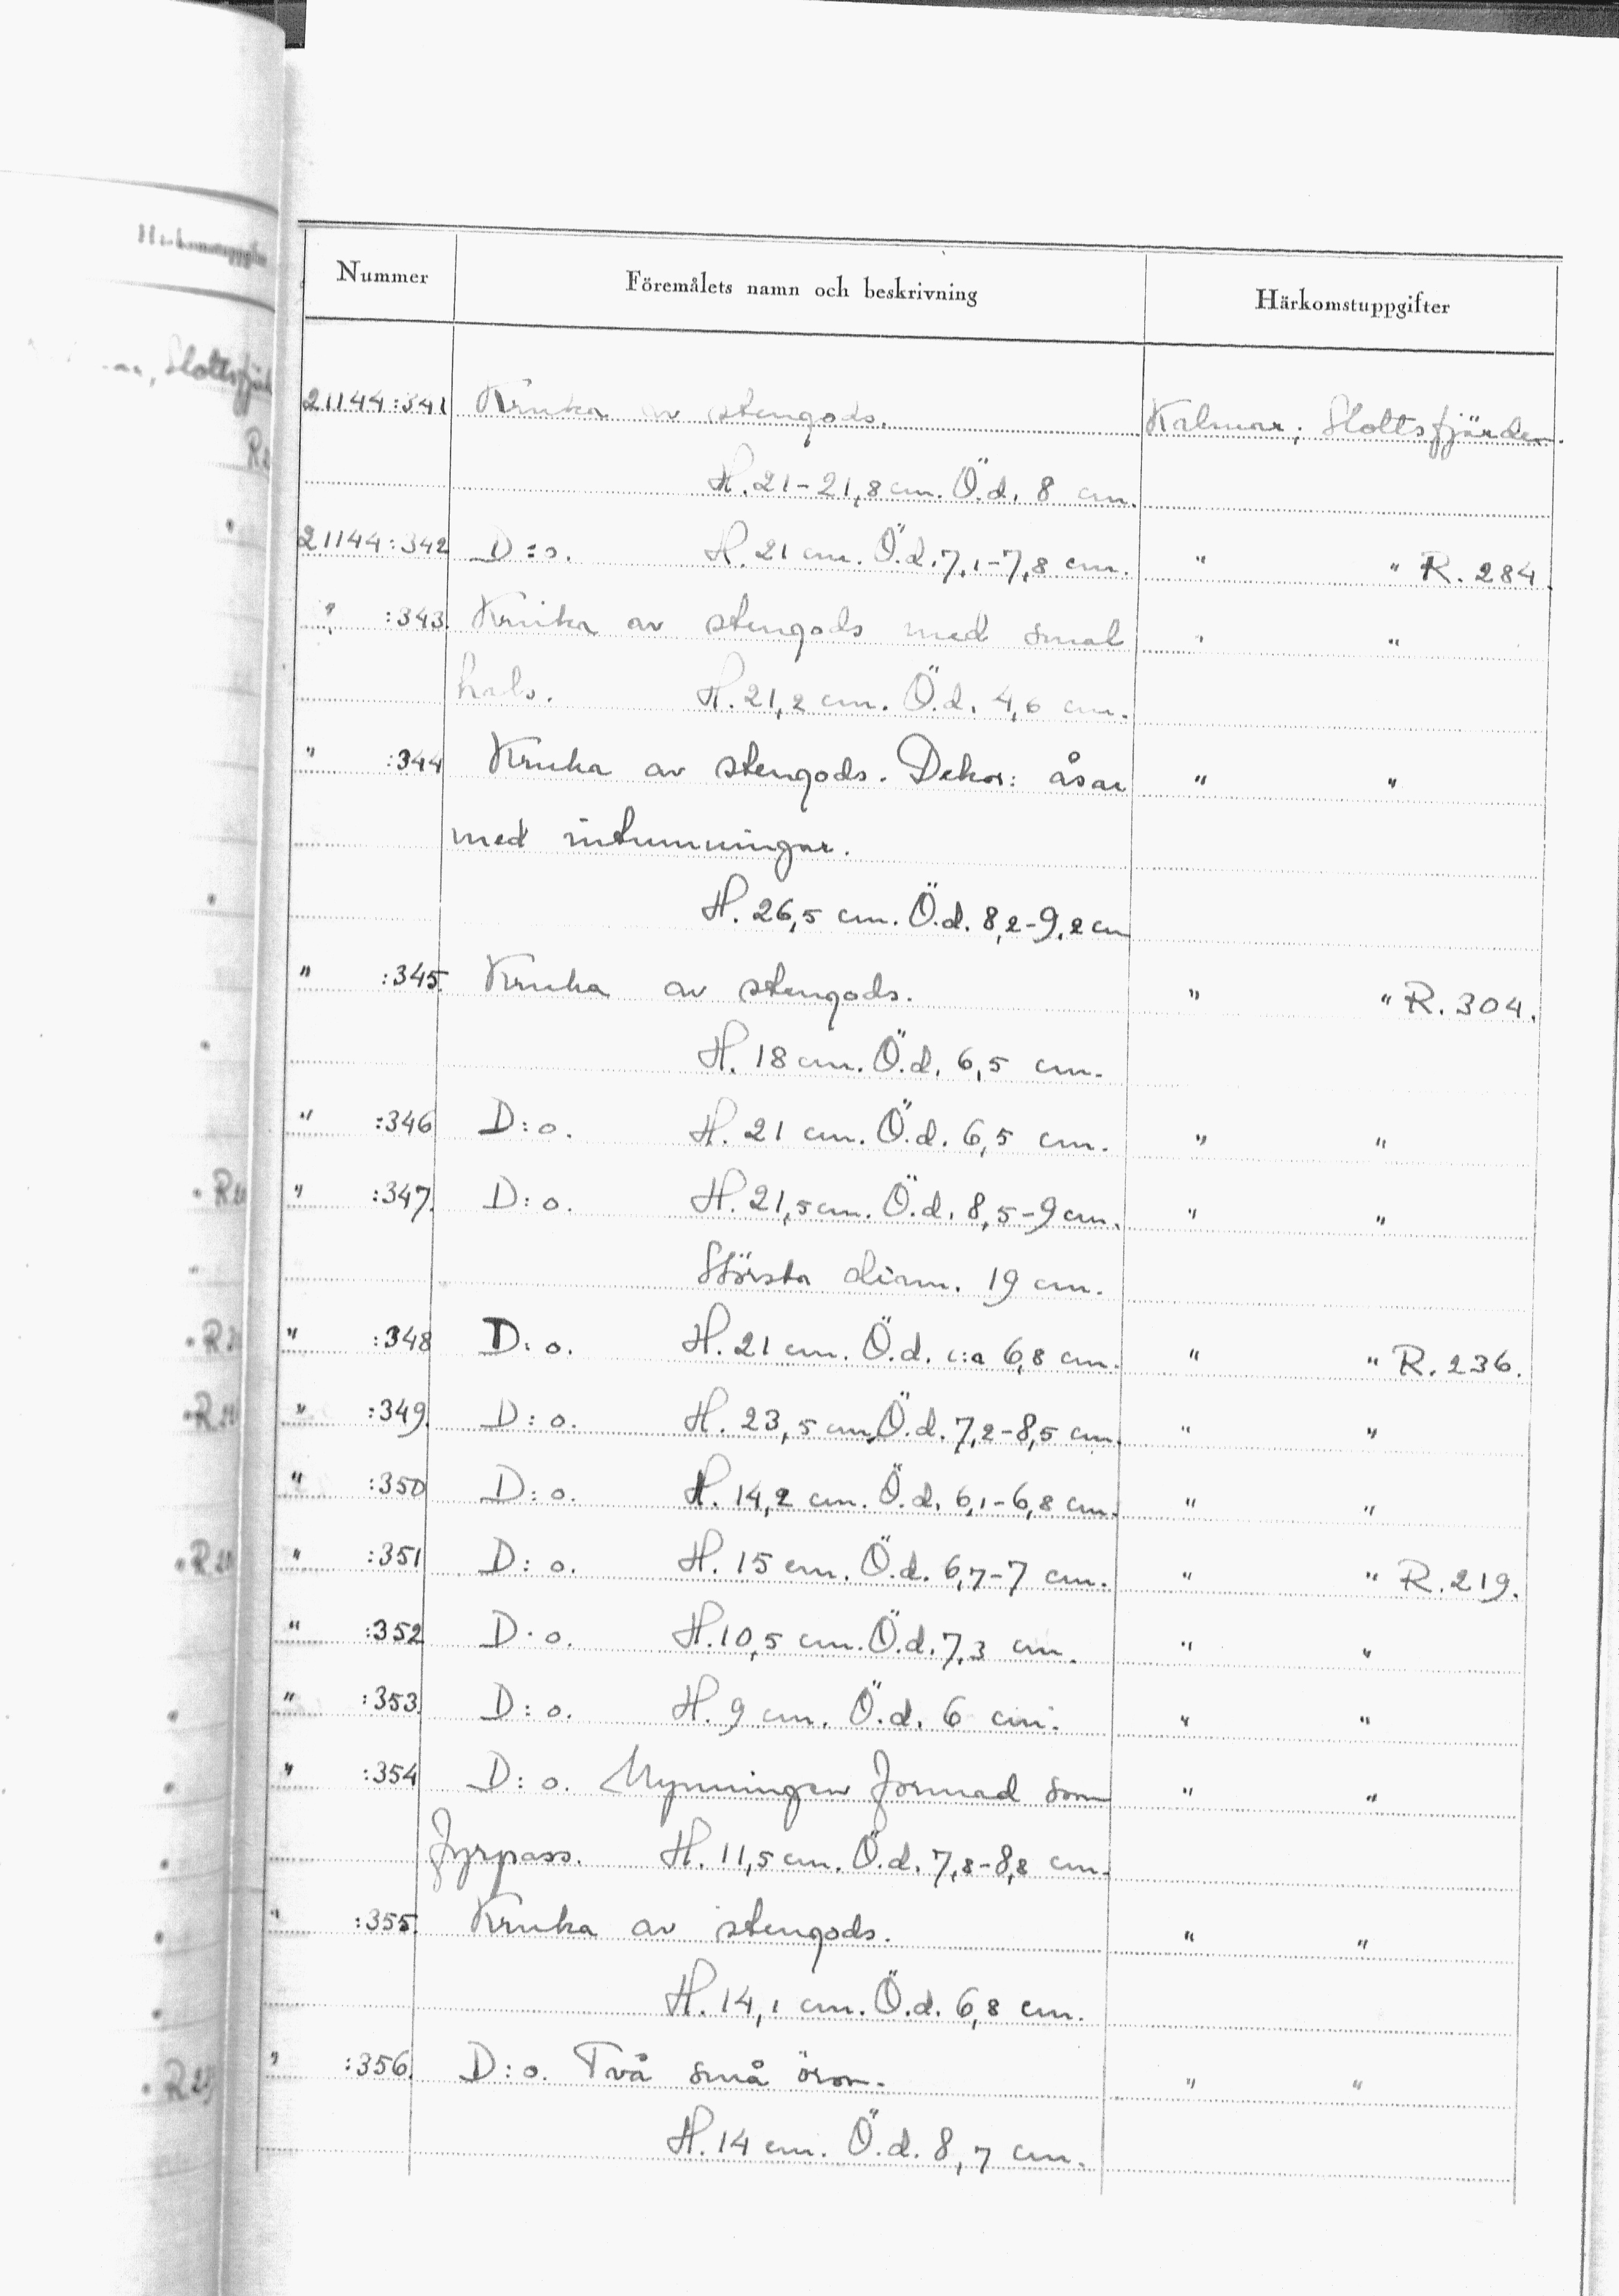 Nummer Föremålets namn och beskrivning Härkomstuppgifter
21144:341 Kruka av stengods. Kalmar, Slottsfjärden.
H. 21-21,8 cm. Ö.d. 8 cm.
21144:342 D:o. H. 21 cm. Ö.d. 7,1-7,8 cm. " " R. 284.
" :343. Kruka av stengods med smal " "
hals. H. 21,2 cm. Ö.d. 4,6 cm.
" :344 Kruka av stengods. Dekor: åsar " "
med intumningar.
H. 26,5 cm. Ö.d. 8,2-9,2 cm
" :345. Kruka av stengods. " " R. 304.
H. 18 cm. Ö.d. 6,5 cm.
" :346 D:o. H. 21 cm. Ö.d. 6,5 cm. " "
" :347. D:o. H. 21,5 cm. Ö.d. 8,5-9 cm. " "
Största diam. 19 cm.
" :348 D:o. H. 21 cm. Ö.d. c:a 6,8 cm. " " R. 236.
" :349. D:o. H. 23,5 cm. Ö.d. 7,2-8,5 cm. " "
" :350 D:o. H. 14,2 cm. Ö.d. 6,1-6,8 cm. " "
" :351 D:o. H. 15 cm. Ö.d. 6,7-7 cm. " " R. 219.
" :352 D:o. H. 10,5 cm. Ö.d. 7,3 cm. " "
" :353. D:o. H. 9 cm. Ö.d. 6 cm. " "
" :354 D:o. Mynningen formad som " "
fyrpass. H. 11,5 cm. Ö.d. 7,8-8,8 cm.
" :355. Kruka av stengods. " "
H. 14,1 cm. Ö.d. 6,8 cm.
" :356. D:o. Två små öron. " "
H. 14 cm. Ö.d. 8,7 cm.